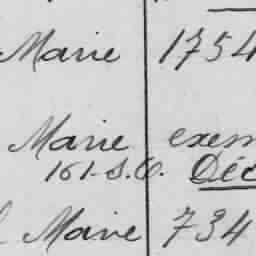 Marie 1754
Marie exem
161-S.O. Déc
Marie 734